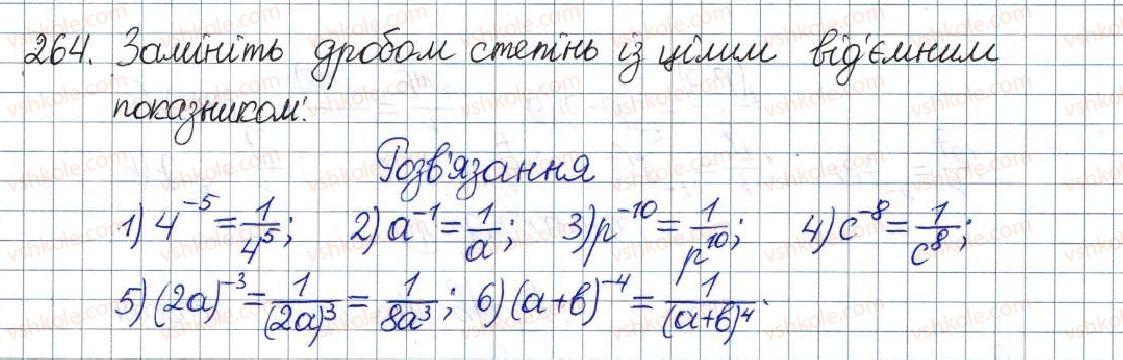 264. Замініть дробом степінь із цілим від'ємним
показником:
Розв'язання
1) 4^{-5} = \frac{1}{4^5}; 2) a^{-1} = \frac{1}{a}; 3) p^{-10} = \frac{1}{p^{10}}; 4) c^{-8} = \frac{1}{c^8};
5) (2a)^{-3} = \frac{1}{(2a)^3} = \frac{1}{8a^3}; 6) (a+b)^{-4} = \frac{1}{(a+b)^4}.